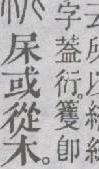 所以
字蓋衍。籰卽
杘或從木。